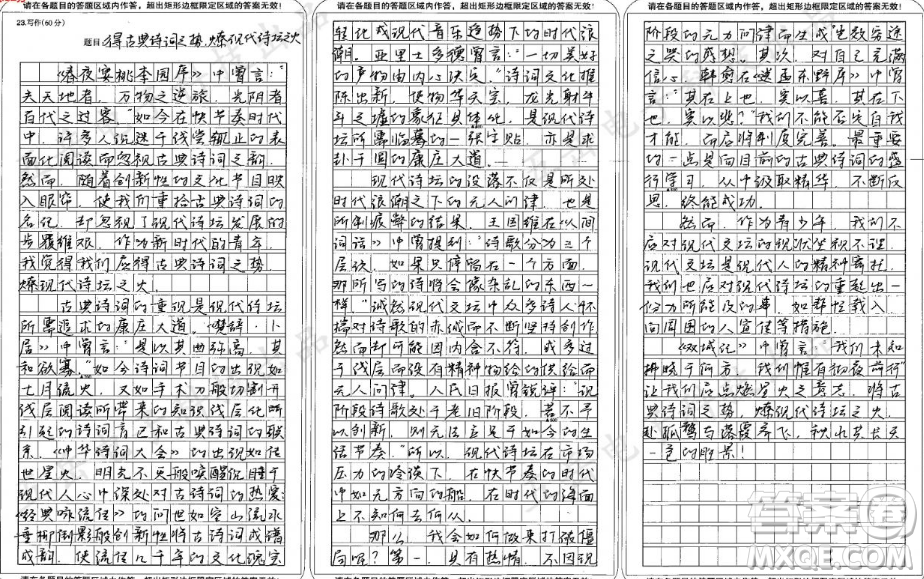 请在各题目的答题区域内作答，超出矩形边框限定区域的答案无效！
23.写作(60分)
题目 得古典诗词之势，燎现代诗坛之火
《春夜宴桃李园序》中曾言：“
夫天地者，万物之逆旅，光阴者
百代之过客”如今在快节奏时代
中，许多人沉迷于浅尝辄止的表
面化阅读而忽视古典诗词之韵，
然而，随着创新性的文化节目映
入眼帘，使我们重拾古典诗词的
名记，却忽视了现代诗坛发展的
步履维艰，作为新时代的青年，
我觉得我们应得古典诗词之势，
燎现代诗坛之火。
古典诗词的重现是现代诗坛
所需追求的康庄大道。《楚辞·卜
居》中曾言：“是以其曲弥高，其
和欲寡”如今诗词节目的出现如
七月流火，又如手术刀般切割开
浅层阅读所带来的知识浅层化所
引起的诗词盲区和古典诗词的联
系，《中华诗词大会》的出现如恒
世星火，明亮不灭般唤醒沉睡于
现代人心中深处对古诗词的热爱；
《经典咏流传》的问世如空山流水
垂柳倒影般创新性将古诗词成谱
成韵，使流径几千年的文化瑰宝
请在各题目的答题区域内作答，超出矩形边框限定区域的答案无效！
轻化成现代音乐趋势下的时代浪
潮。亚里士多德曾言：“一切美好
的事物由内心决定。”诗词文化推
陈出新，使物华天宝，龙光射牛
斗之墟的意征具体化，是现代诗
坛所需临摹的一张字贴，亦是求
卦于国的康庄大道。
现代诗坛的没落不仅是所处
时代浪潮之下的无人问津，也是
所制疲弊的结果，王国维在《人间
词话》中曾提到：“诗歌分为三个
层次，如果只停留在一个方面，
那所写的诗将会像杂乱的东西一
样”诚然现代文坛中众多诗人怀
揣对诗歌的赤诚而不断坚持创作
然而却可能因内含不符，或多过
于浅层而没有精神物给的供给而
无人问津。人民日报曾锐评：“现
阶段诗歌处于老旧阶段，若不予
以创新，则无法立足于如今的生
信节奏”所以，现代诗坛在市场
压力的冷淡下，在快节奏的时代
中如无方向的船，在时代的海面
上不知何去何从。
那么，我会如何做来打破僵
局呢？第一，具有热情，不因现
请在各题目的答题区域内作答，超出矩形边框限定区域的答案无效！
阶段的无力问津而生成失败容迹
之类的感想。其次，对自己充满
言：“其在上也，实以善，其在下
才能，而后将制度完善。最重要
的一点是向目前的古典诗词的盛
行学习，从中汲取精华，不断反
思，终能成功。
然而，作为青少年，我们不
应对现代文坛的现状坐视不理。
现代文坛是现代人的精神寄托，
我们也应对现代诗坛的重起出一
份力所能及的事，如群怪我入
向周围的人宣传等措施。
《双城记》中曾言：“我们未知
拂晓于何方，我们惟有彻夜前行”
让我们应点燃星火之嘉木，得古
典诗词之势，燎现代诗坛之火，
处孤鹜与落霞齐飞，秋水共长天
一色的盼景！
答案圈
MXQE.COM